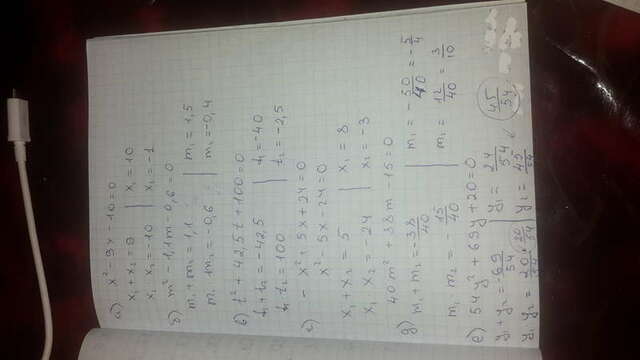 а) x² - 9x - 10 = 0
x₁ + x₂ = 9 | x₁ = 10
x₁ x₂ = -10 | x₁ = -1
б) m² - 1,1m - 0,6 = 0
m₁ + m₂ = 1,1 | m₁ = 1,5
m₁ m₂ = -0,6 | m₂ = -0,4
в) t² + 42,5t + 100 = 0
t₁ + t₂ = -42,5 | t₁ = -40
t₁ t₂ = 100 | t₁ = -2,5
г) - x² + 5x + 24 = 0
x² - 5x - 24 = 0
x₁ + x₂ = 5 | x₁ = 8
x₁ x₂ = -24 | x₁ = -3
40m² + 38m - 15 = 0
д) m₁ + m₂ = -38/40 | m₁ = -50/40 = -5/4
m₁ m₂ = -15/40 | m₁ = 12/40 = 3/10
е) 54y² + 69y + 20 = 0
y₁ + y₂ = -69/54 | y₁ = 24/54
y₁ y₂ = 20/54 | y₂ = 45/54
45/54